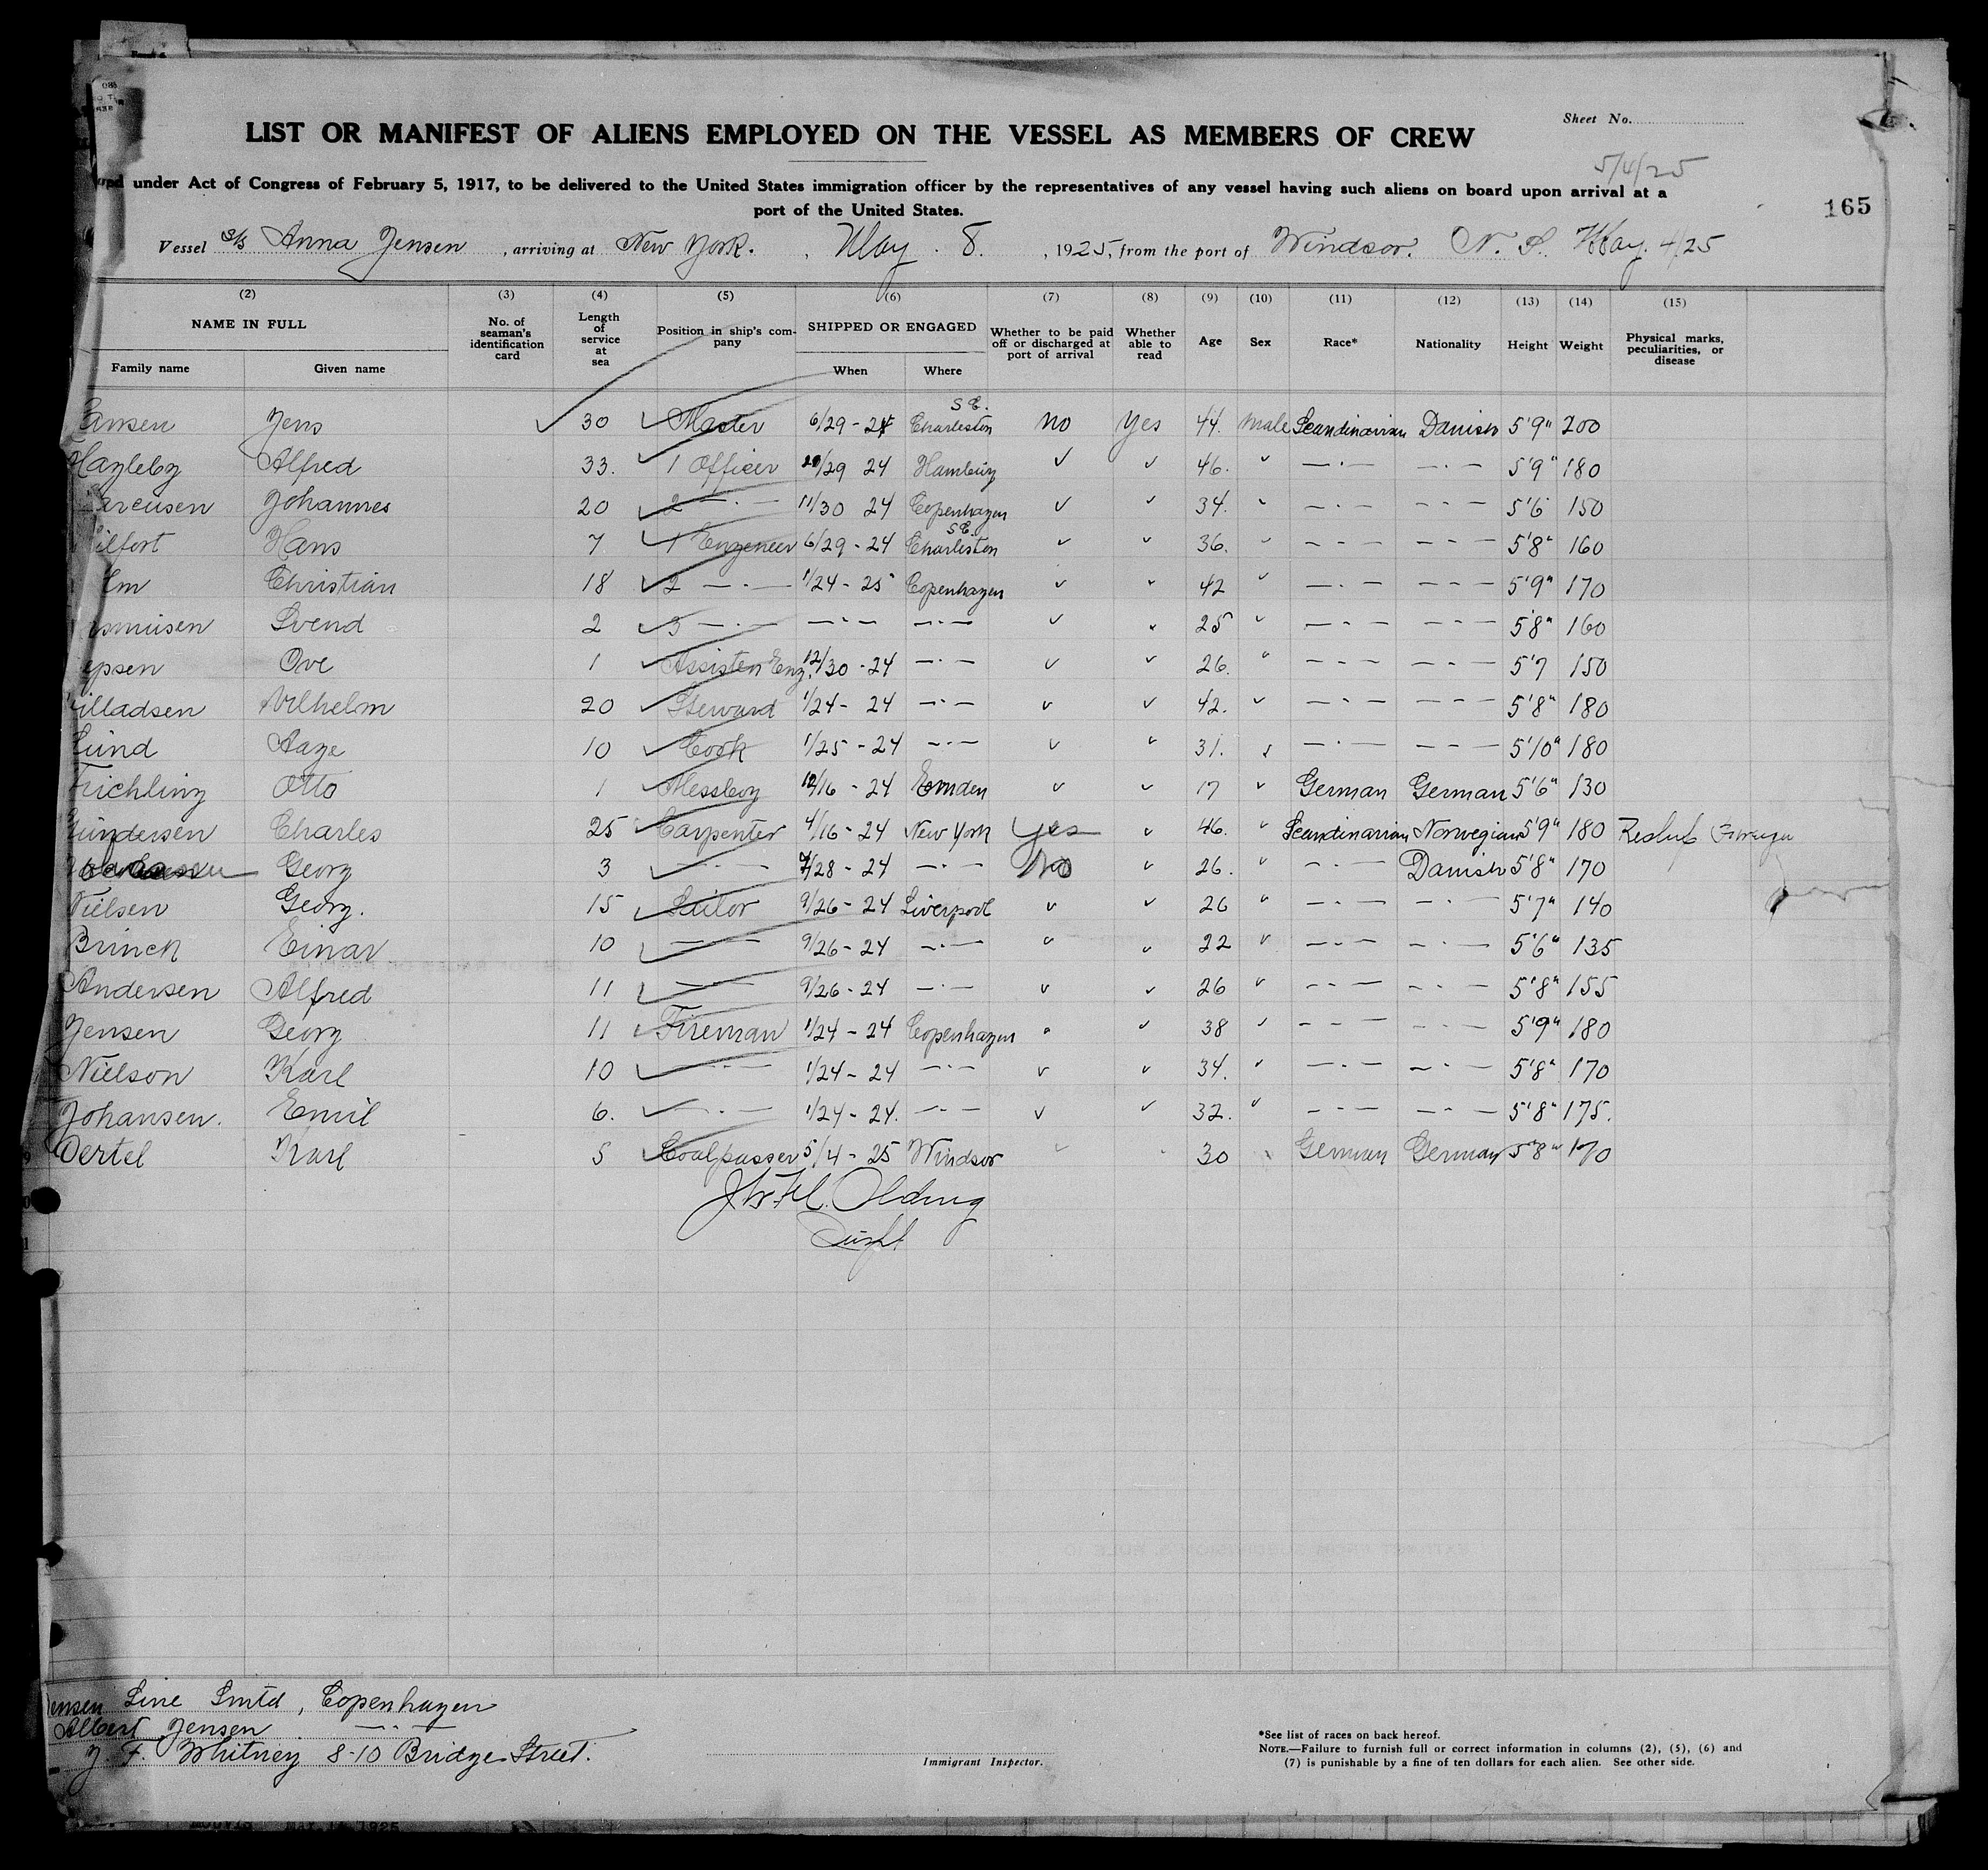 Sheet No.
LIST OR MANIFEST OF ALIENS EMPLOYED ON THE VESSEL AS MEMBERS OF CREW
5/4/25
under Act of Congress of February 5, 1917, to be delivered to the United States immigration officer by the representatives of any vessel having such aliens on board upon arrival at a
port of the United States.
165
Vessel S/S Anna Jensen, arriving at New York. May. 8., 1925, from the port of Windsor. N. S. May. 4/25
(2) (3) (4) (5) (6) (7) (8) (9) (10) (11) (12) (13) (14) (15)
NAME IN FULL No. of seaman's identification card Length of service at sea Position in ship's company SHIPPED OR ENGAGED Whether to be paid off or discharged at port of arrival Whether able to read Age Sex Race* Nationality Height Weight Physical marks, peculiarities, or disease
Family name Given name When Where
Jens ✓ 30 ✓ Master 6/29-24 Charleston S.C. No Yes 44. Male Scandinavian Danish 5'9" 200
Hayleby Alfred 33. ✓ 1 Officer /29 24 Hamburg ✓ ✓ 46. " —·— —·— 5'9" 180
Johannes 20 ✓ 2 —·— 11/30 24 Copenhagen ✓ " 34. " —·— - - - 5'6 150
Hans 7 ✓ 1 Engeneer 6/29-24 Charleston S.C. ✓ " 36. " - - - - - - 5'8" 160
Christian 18 ✓ 2 —·— 1/24-25 Copenhagen ✓ " 42 " —·— - - - 5'9" 170
Svend 2 ✓ 3 —·— —·— —·— ✓ " 25 " - - - - - - 5'8" 160
Ove 1 ✓ Assisten Eng. 12/30-24 —·— ✓ ✓ 26. " - - - - - - 5'7 150
Villadsen Vilhelm 20 ✓ Steward 1/24-24 —·— ✓ ✓ 42. ✓ - - - - - - 5'8" 180
Lund Aage 10 ✓ Cook 1/25-24 —·— ✓ " 31. " —·— - - - 5'10" 180
Otto 1 ✓ Messboy /16-24 Emden ✓ ✓ 17 " German German 5'6" 130
Gundersen Charles 25 ✓ Carpenter 4/16-24 New York Yes " 46. " Scandinavian Norwegian 5'9" 180
Georg 3 ✓ —·— /28-24 —·— No ✓ 26. " —·— Danish 5'8" 170
Nielsen Georg. 15 ✓ Sailor 9/26-24 Liverpool ✓ ✓ 26 " —·— —·— 5'7" 140
Brinck Einar 10 ✓ —·— 9/26-24 —·— " ✓ 22 ✓ —·— —·— 5'6" 135
Andersen Alfred 11 ✓ —·— 9/26-24 —·— ✓ ✓ 26 " - - - —·— 5'8" 155
Jensen Georg 11 ✓ Fireman 1/24-24 Copenhagen " ✓ 38 ✓ - - - - - - 5'9" 180
Nielson Karl 10 ✓ —·— 1/24-24 —·— ✓ ✓ 34. " —·— —·— 5'8" 170
Johansen. Emil 6. ✓ —·— 1/24-24. —·— ✓ ✓ 32. " - - - —·— 5'8" 175.
Oertel Karl 5 ✓ Coalpasser 5/4-25 Windsor 30 German German 5'8" 170
Olding
Line Lmtd, Copenhagen
Albert Jensen —·—
F. Whitney 8-10 Bridge Street.
Immigrant Inspector.
*See list of races on back hereof.
NOTE.—Failure to furnish full or correct information in columns (2), (5), (6) and
(7) is punishable by a fine of ten dollars for each alien. See other side.